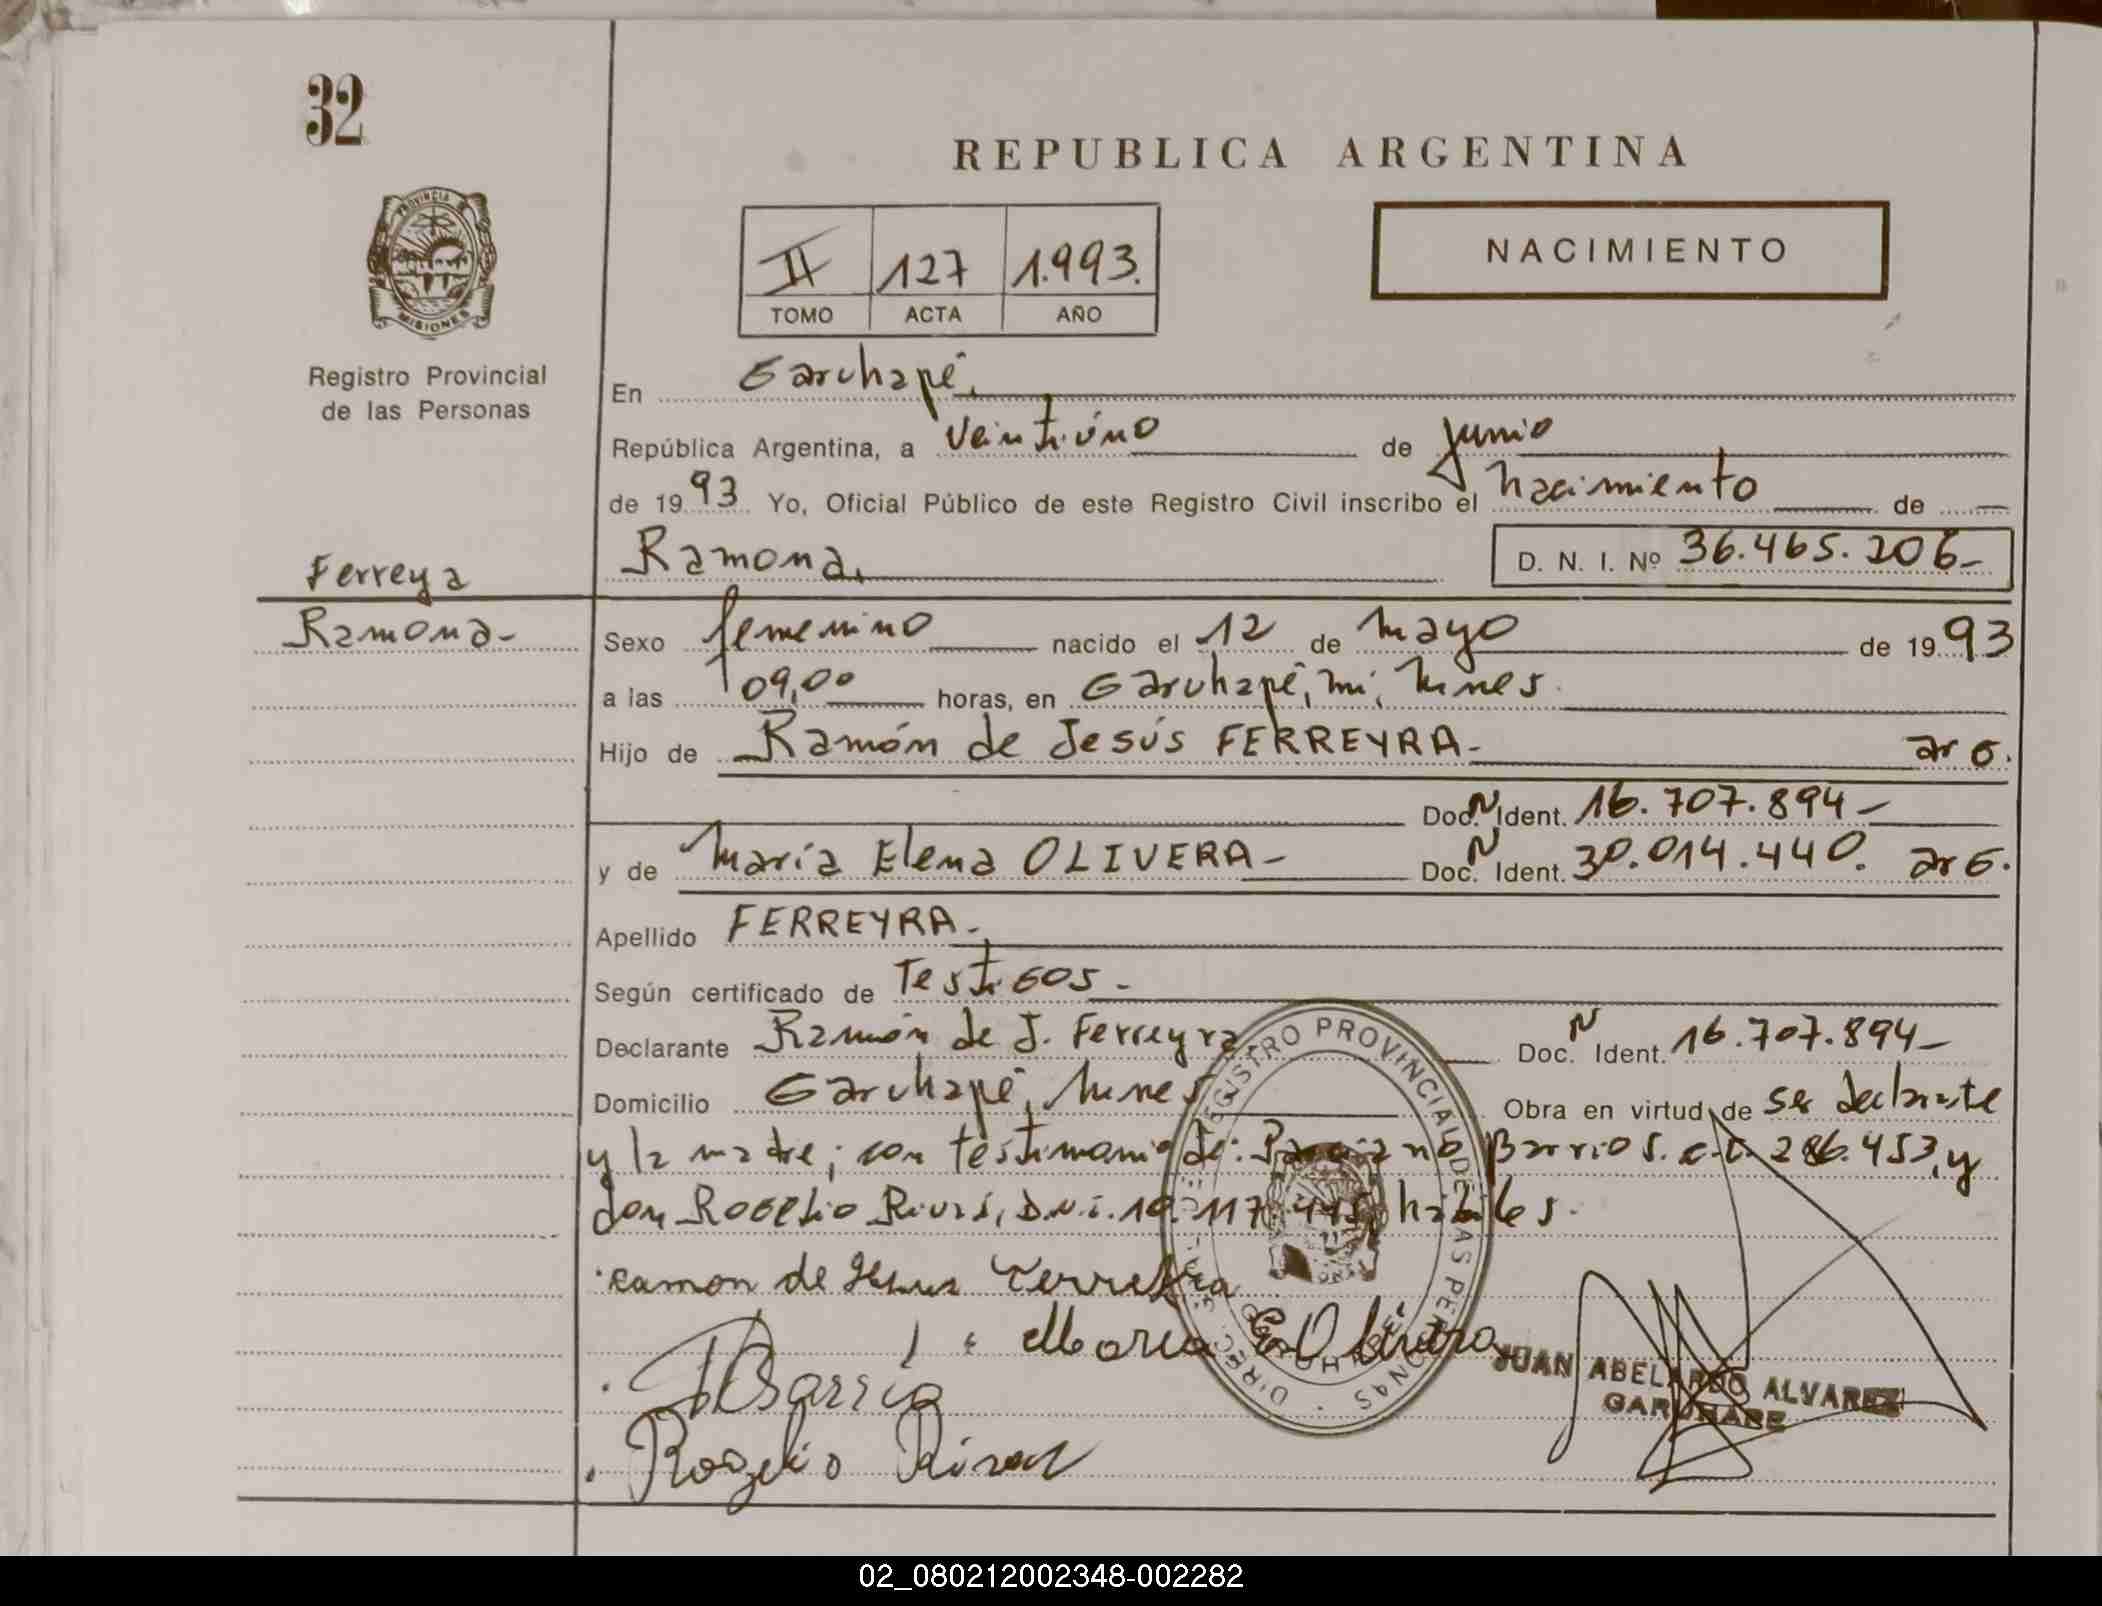 32
REPUBLICA ARGENTINA
II 127 1.993.
TOMO ACTA AÑO
NACIMIENTO
PROVINCIA DE
MISIONES
Registro Provincial
de las Personas
En Garuhapé.
República Argentina, a veintiúno de junio
de 1993 Yo, Oficial Público de este Registro Civil inscribo el nacimiento de
Ramona. D. N. I. Nº 36.465.206-
Ferreya
Ramona-
Sexo femenino nacido el 12 de mayo de 1993
a las 09,00 horas, en Garuhapé, mnes.
Hijo de Ramón de Jesús FERREYRA- arg.
Doc. N Ident. 16.707.894-
y de María Elena OLIVERA- Doc. N Ident. 30.014.440. arg.
Apellido FERREYRA-
Según certificado de Testigos-
Declarante Ramón de J. Ferreyra Doc. N Ident. 16.707.894-
Domicilio Garuhapé, mnes Obra en virtud de ser declarante
y la madre; con testimonio de: Barrios. c.i. 286.453, y
don Rogelio Rivas, D.N.i. 10.117. hábiles.
ramon de Jesus Ferreyra
Maria E. Olivera
Barrio
Rogelio Rivas
DIREC. GRAL. DE REGISTRO PROVINCIAL DE LAS PERSONAS
JUAN ABELARDO ALVAREZ
GARUHAPE
02_080212002348-002282